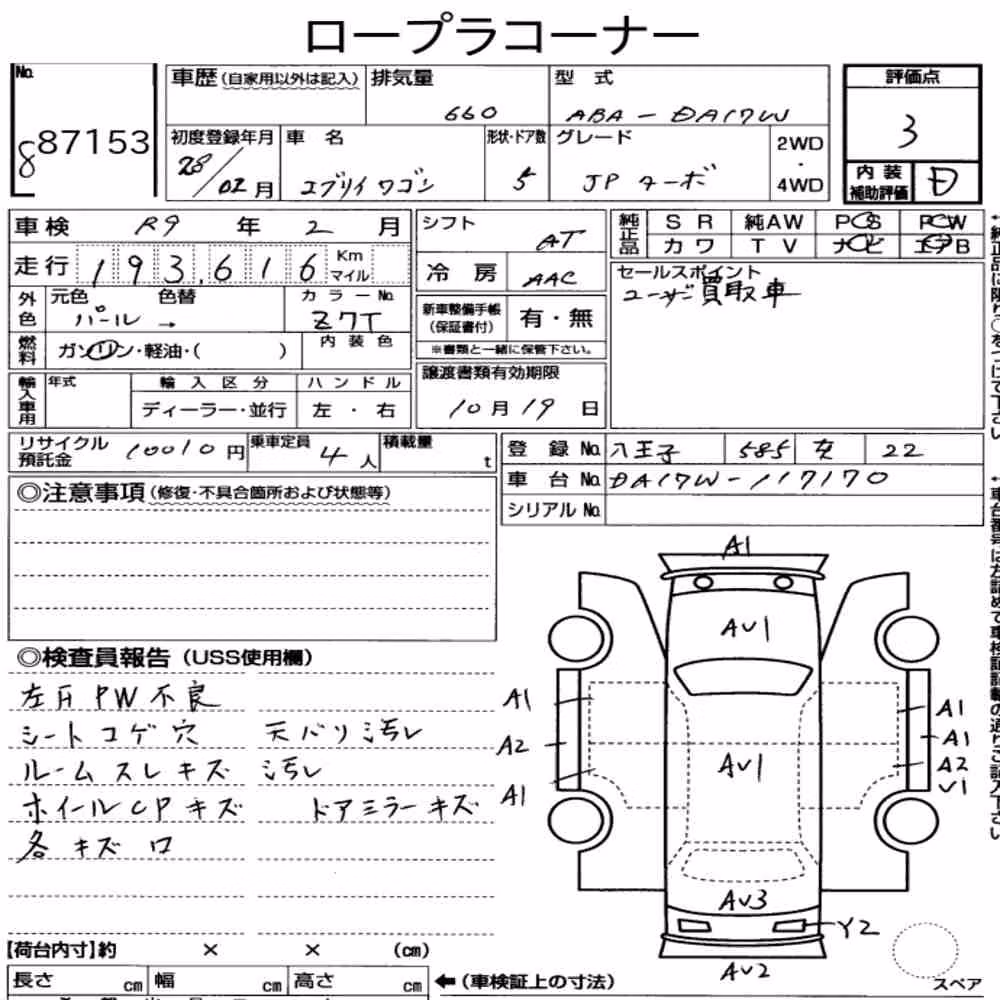 ロープラコーナー
No.
887153
車歴 (自家用以外は記入)
排気量
660
型 式
ABA-DA17W
評価点
3
初度登録年月
28/02月
車 名
エブリイワゴン
形状・ドア数
5
グレード
JP ターボ
2WD
・
4WD
内装
補助評価
D
車検 R9 年 2 月
走行 193,616 Km
マイル
シフト
AT
冷 房
AAC
純正品
S R 純AW PS PW
カワ T V ナビ エアB
セールスポイント
ユーザー買取車
外色
元色 色替
パール →
カラーNo.
Z7T
新車整備手帳
(保証書付)
有・無
※書類と一緒に保管下さい。
燃料
ガソリン・軽油・( )
内 装 色
輸入車用
年式
輸 入 区 分
ディーラー・並行
ハ ン ド ル
左 ・ 右
譲渡書類有効期限
10月19日
リサイクル
預託金
10010円
乗車定員
4人
積載量
t
登 録 No. 八王子 585 22
車 台 No. DA17W-117170
シリアル No.
◎注意事項 (修復・不具合箇所および状態等)
◎検査員報告 (USS使用欄)
左前PW不良
シートコゲ穴 天バリ汚レ
ルームスレキズ 汚レ
ホイールCPキズ ドアミラーキズ
各キズ口
A1
AV1
A1
A2
A1
AV1
A1
A1
A2
V1
AV3
Y2
AV2
スペア
【荷台内寸】約 × × (cm)
長さ cm 幅 cm 高さ cm
←(車検証上の寸法)